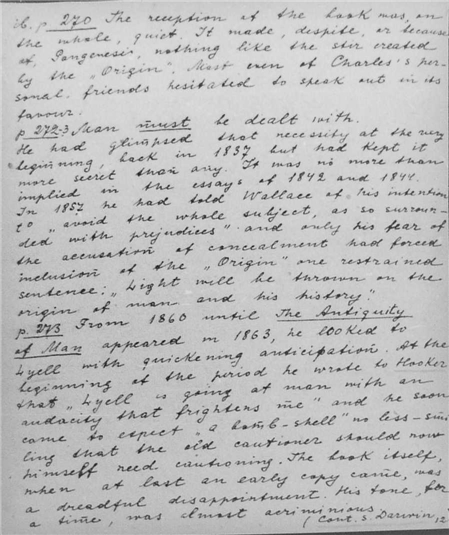 ib. p. 270 The reception of the book was, on
the whole, quiet. It made, despite, or because
of, Pangenesis, nothing like the stir created
by the „Origin". Most even of Charles's per-
sonal friends hesitated to speak out in its
favour.
p. 272-3 Man must be dealt with.
He had glimpsed that necessity at the very
beginning, back in 1837 but had kept it
more secret than any. It was no more than
implied in the essays of 1842 and 1844.
In 1857 he had told Wallace of his intention
to „avoid the whole subject, as so surroun-
ded with prejudices" and only his fear of
the accusation of concealment had forced
inclusion of the „Origin" one restrained
sentence: „Light will be thrown on the
origin of man and his history".
p. 273 From 1860 until The Antiquity
of Man appeared in 1863, he looked to
Lyell with quickening anticipation. At the
beginning of the period he wrote to Hooker
that „Lyell is going at man with an
audacity that frightens me" and he soon
came to expect „a bomb-shell" no less – smi
ling that the old cautioner should now
himself need cautioning. The book itself,
when at last an early copy came, was
a dreadful disappointment. His tone, for
a time, was almost acriminious
(Cont. s. Darwin, 12